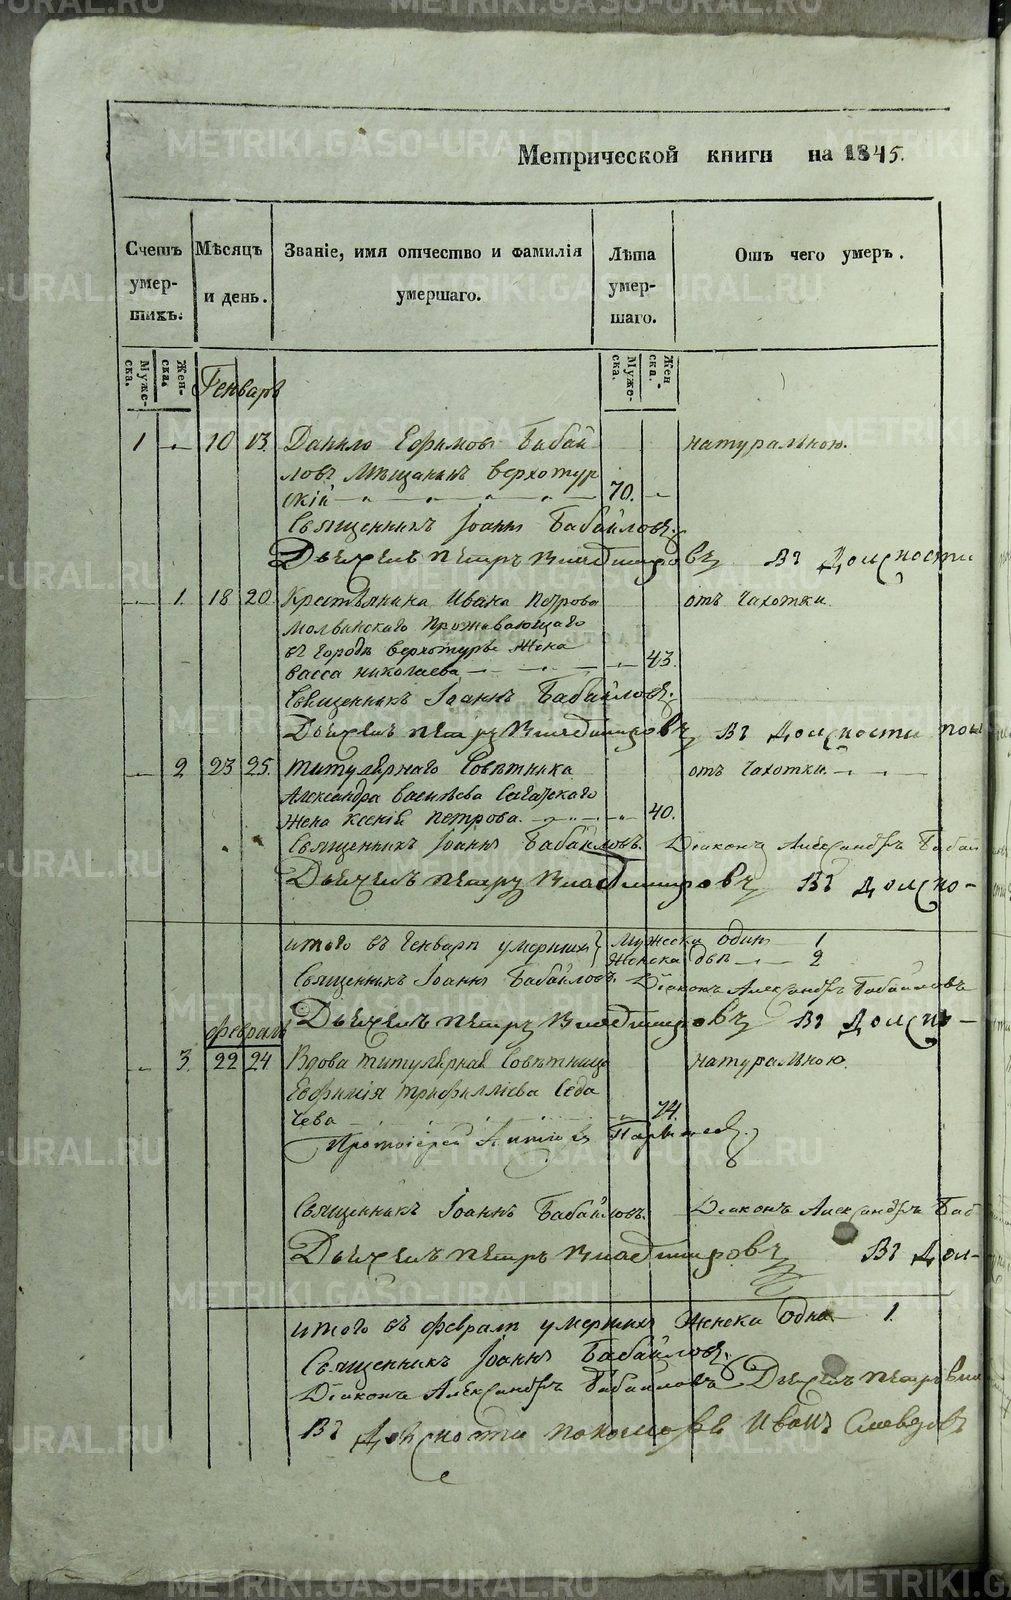 METRIKI.GASO-URAL.RU
Метрической книги на 1845.
Счетъ умер-
шихъ.
Мѣсяцъ
и день.
Званіе, имя отчество и фамилія
умершаго.
Лѣта
умер-
шаго.
Отъ чего умеръ.
Муже-
ска.
Жен-
ска.
Муже-
ска.
Жен
ска.
Генварь
1 10 13. Данило Ефимовъ Бабай натуральною.
ловъ Мѣщанинъ верхотур
скій 70.
Священникъ Іоаннъ Бабайловъ.
Дьячекъ Петръ Владимировъ Въ Должности
1. 18 20 Крестьянина Ивана Петрова отъ Чахотки.
Молвинскаго проживающаго
въ городѣ верхотурье Жена
Васса николаева 43.
Священникъ Іоаннъ Бабайловъ.
Дьячекъ Петръ Владимировъ Въ Должности поно
2 23 25. титулярнаго Совѣтника отъ Чахотки
Александра Васильева
Жена Ксенія Петрова. 40.
Священникъ Іоаннъ Бабайловъ. Діаконъ Александръ Бабай
Дьячекъ Петръ Владимировъ Въ Должно-
итого въ Генварѣ умершихъ Мужеска одинъ 1
Женска двѣ 2
Священникъ Іоаннъ Бабайловъ. Діаконъ Александръ Бабайловъ
Дьячекъ Петръ Владимировъ Въ Должно-
февраль
3. 22 24 Вдова титулярная Совѣтница натуральною.
Евфимія Трифиллiева Седа
чева 74.
Протоіерей
Священникъ Іоаннъ Бабайловъ. Діаконъ Александръ Баб
Дьячекъ Петръ Владимировъ Въ Дол-
итого въ февралѣ умершихъ Женска Одна 1.
Священникъ Іоаннъ Бабайловъ.
Діаконъ Александръ Бабайловъ Дьячекъ Петръ Вла
Въ Должности пономоря Иванъ